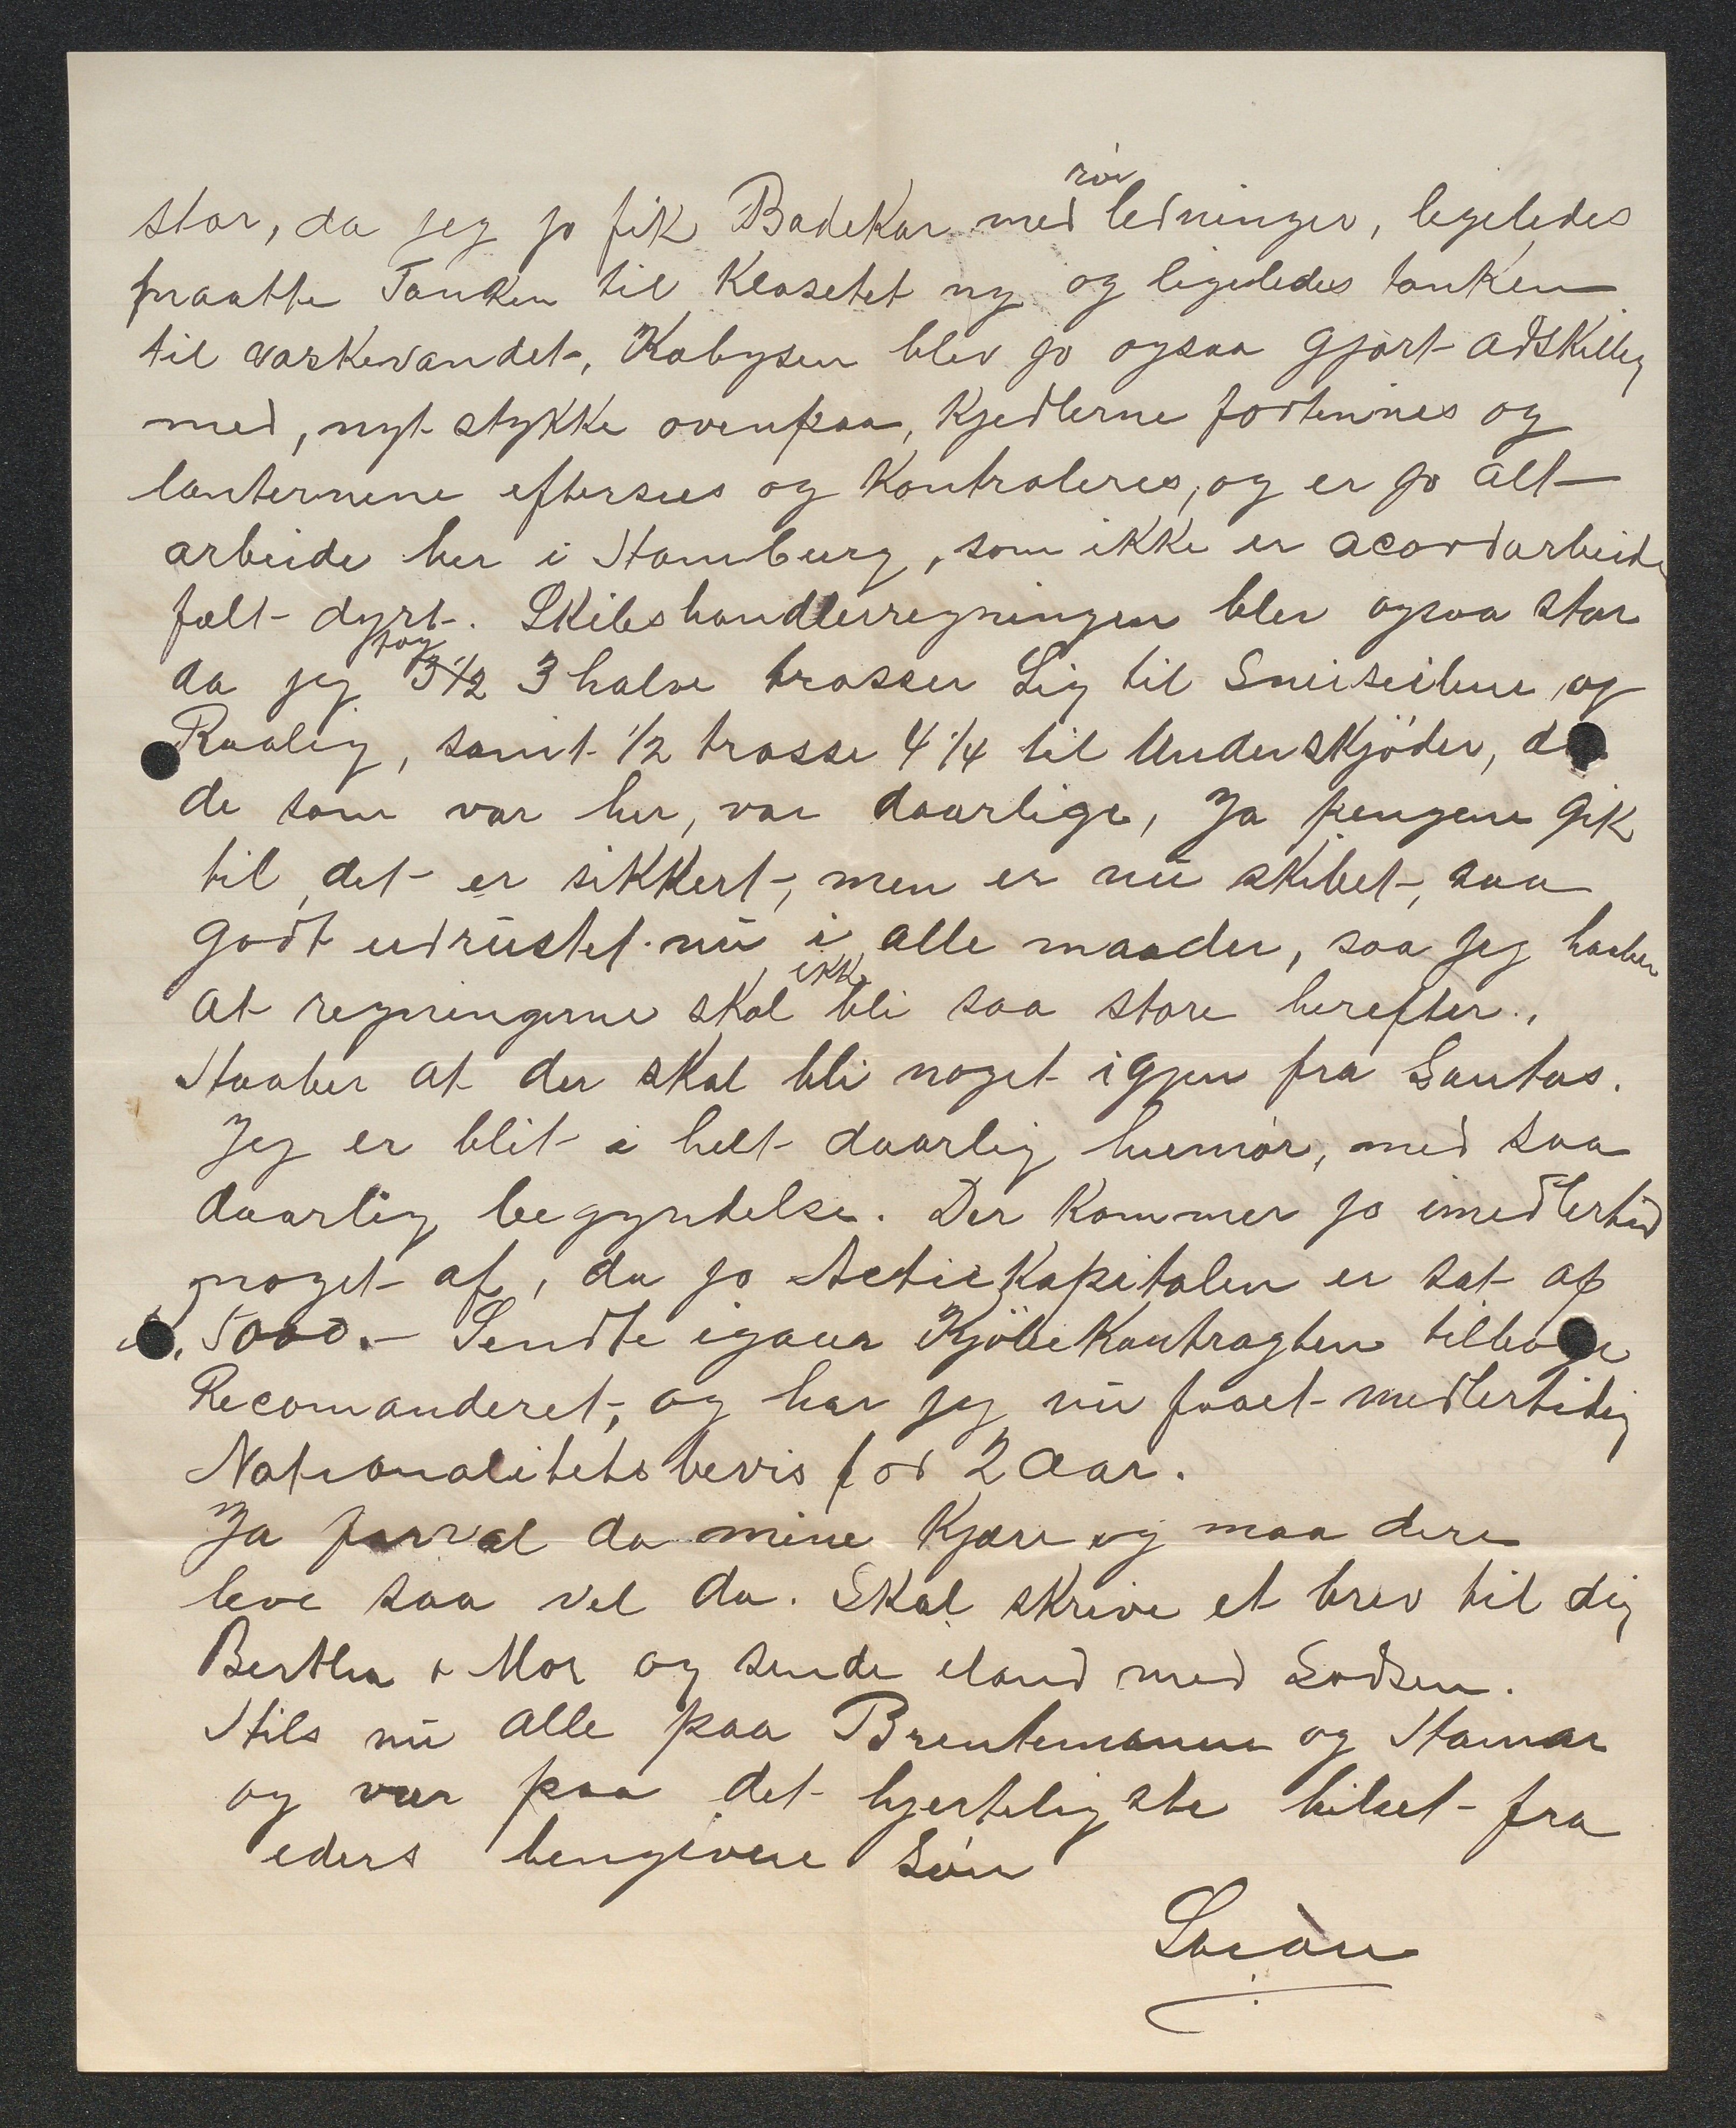 stor, da jeg jo fik Badekar med rör ledninger, ligeledes
maatte Tanken til Klosetet ny og ligeledes tanken
til vaskevandet, Kabysen blev jo ogsaa gjort adskillig
med, nyt stykke ovenpaa, Kjedlerne fortinnes og
lanternene eftersees og Kontroleres, og er jo alt
arbeide her i Hamburg, som ikke er acordarbeide
fælt dyrt. Skibshandlerregningen blev ogsaa stor
da jeg tog 3 1/2 3 halve trosser Lig til Sneiseilene og
Raalig, samt 1/2 trosse 4 1/4 til Underskjöder, da
de som var her, var daarlige, Ja pengene gik
til, det er sikkert, men er nu skibet, saa
godt udrustet nu i alle maader, saa jeg haaber
at regningerne skal ikke bli saa store herefter.
Haaber at der skal bli noget igjen fra Santos.
Jeg er blit i helt daarlig humör, med saa
daarlig begyndelse. Der kommer jo imedlertid
noget af, da jo Actiekapitalen er sat op
5000.- Sendte igaar Kjöbekontragten tilbage
Recomanderet, og har jeg nu faaet medlertidig
Nationalitetsbevis for 2 Aar.
Ja farvel da mine Kjære og maa dere
leve saa vel da. Skal skrive et brev til dig
Bertha & Mor og sende iland med Lodsen.
Hils nu alle paa Brentemoen og Hamar
og vær paa det hjerteligste hilset fra
eders hengivne Sön